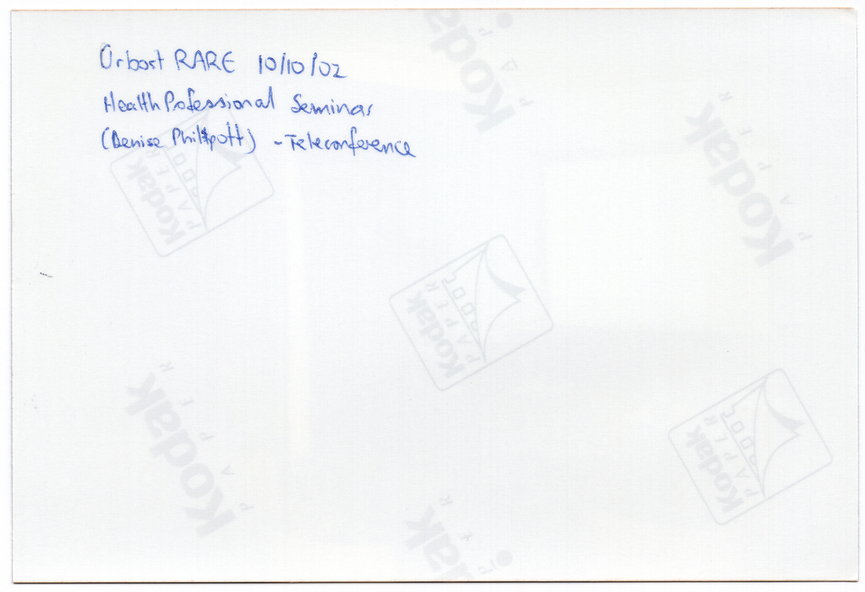 Orbost RARE 10/10/02
Health Professional Seminar
(Denise Philpott) - Teleconference
Kodak
PAPER
Kodak
PAPER
Kodak
PAPER
Kodak
PAPER
Kodak
PAPER
Kodak
PAPER
Kodak